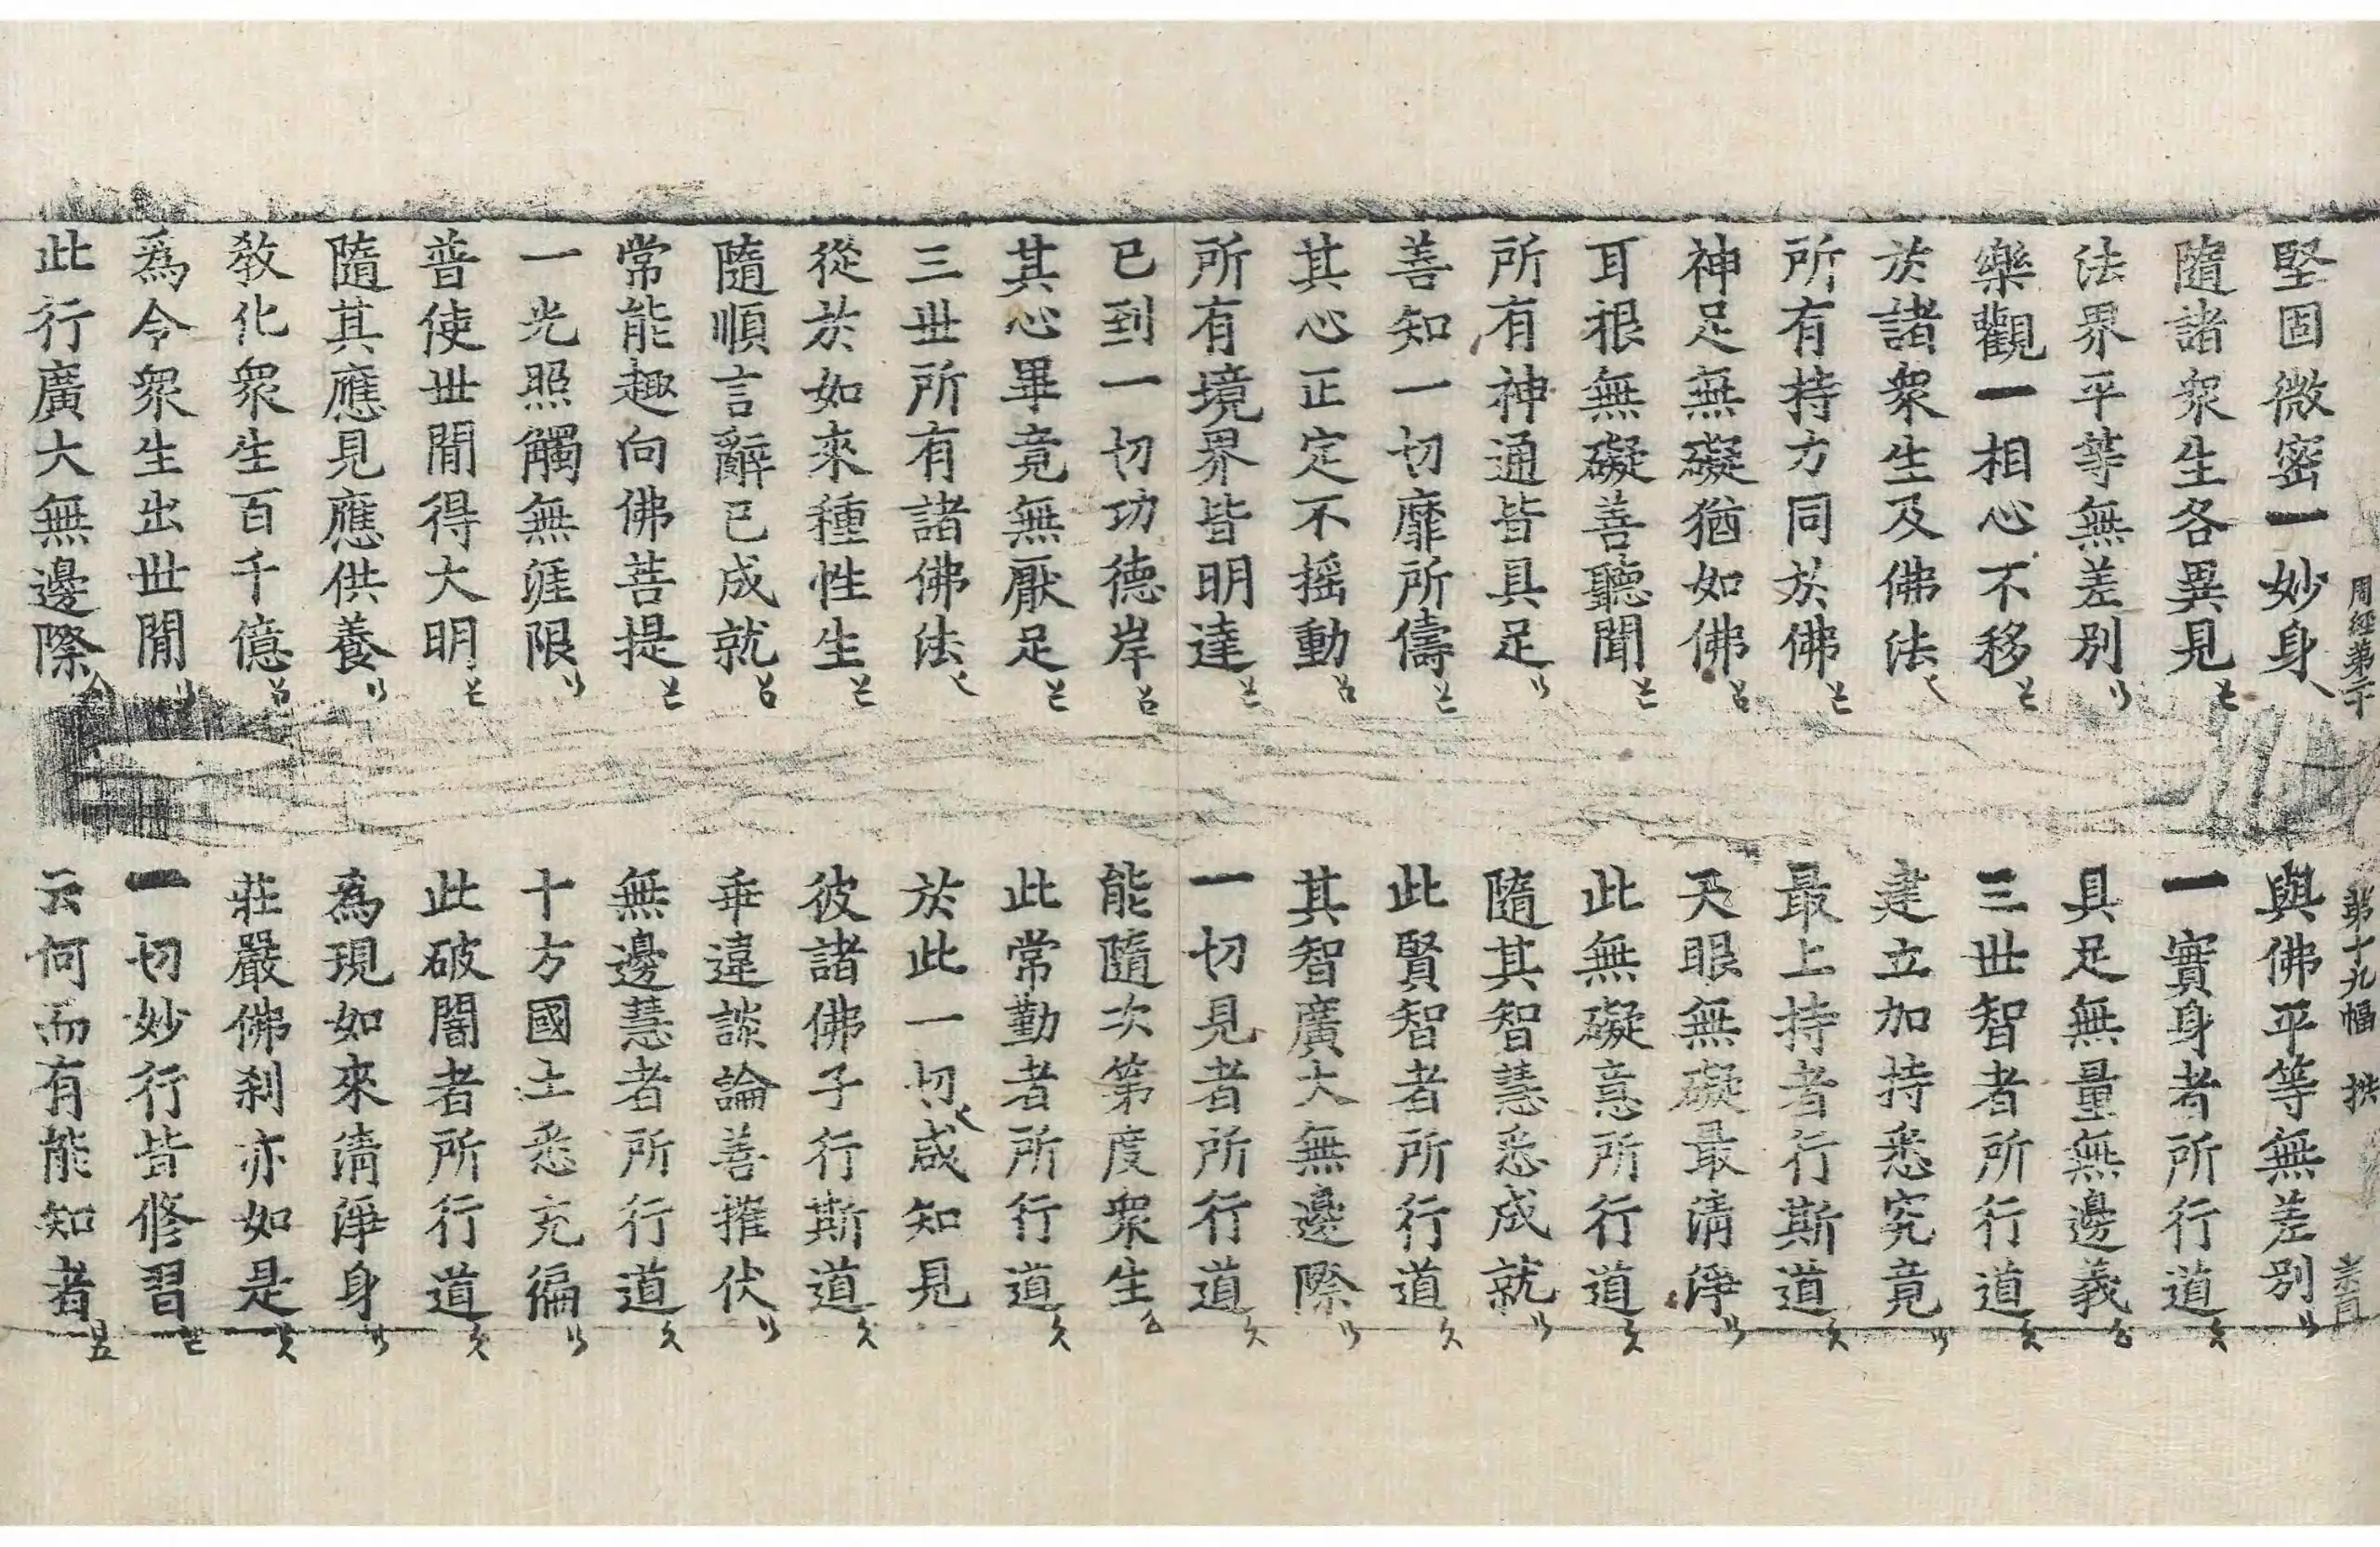 周經第二十 第十九幅
堅固微密一妙身 與佛平等無差別
隨諸衆生各異見 一實身者所行道
法界平等無差別 具足無量無邊義
樂觀一相心不移 三世智者所行道
於諸衆生及佛法 建立加持悉究竟
所有持方同於佛 最上持者行斯道
神足無礙猶如佛 天眼無礙最清淨
耳根無礙善聽聞 此無礙意所行道
所有神通皆具足 隨其智慧悉成就
善知一切靡所儔 此賢智者所行道
其心正定不搖動 其智廣大無邊際
所有境界皆明達 一切見者所行道
已到一切功德岸 能隨次第度衆生
其心畢竟無厭足 此常勤者所行道
三世所有諸佛法 於此一切咸知見
從於如來種性生 彼諸佛子行斯道
隨順言辭已成就 乖違談論善摧伏
常能趣向佛菩提 無邊慧者所行道
一光照觸無涯限 十方國土悉充徧
普使世間得大明 此破闇者所行道
隨其應見應供養 為現如來清淨身
教化衆生百千億 莊嚴佛刹亦如是
爲令衆生出世間 一切妙行皆修習
此行廣大無邊際 云何而有能知者